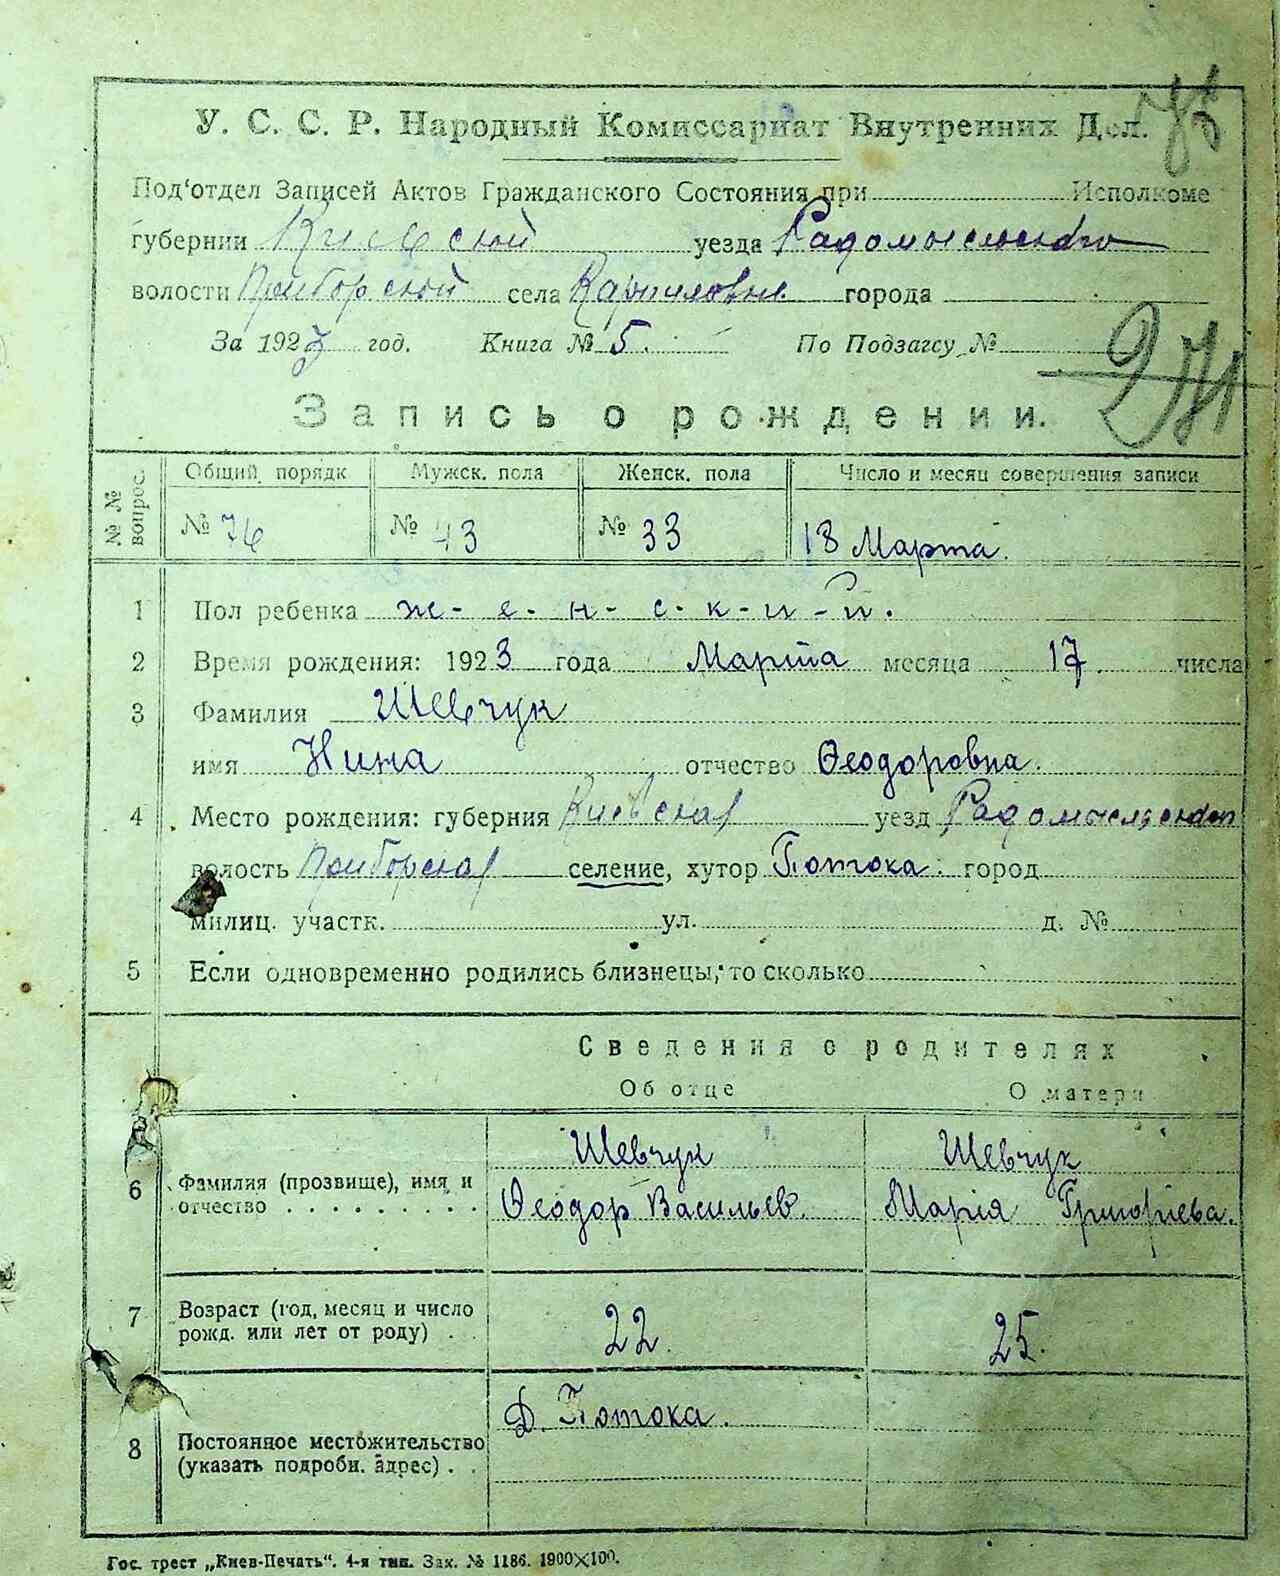 У. С. С. Р. Народный Комиссариат Внутренних Дел.
Под‘отдел Записей Актов Гражданского Состояния при Исполкоме
губернии Киевской уезда Радомысльского
волости Приборской села Карпиловки города
За 1923 год. Книга № 5. По Подзагсу №
271
Запись о рождении.
№ № вопрос.
Общий порядк Мужск. пола Женск. пола Число и месяц совершения записи
№ 76 № 43 № 33 18 Марта.
1 Пол ребенка ж-е-н-с-к-и-й.
2 Время рождения: 1923 года Марта месяца 17. числа
3 Фамилия Шевчук
имя Нина отчество Ѳеодоровна.
4 Место рождения: губерния Киевская уезд Радомысльский
волость Приборская селение, хутор Потока. город
милиц. участк. ул. д. №
5 Если одновременно родились близнецы, то сколько
Сведения о родителях
Об отце О матери
Шевчук Шевчук
6 Фамилия (прозвище), имя и отчество . . . . . . . . . Ѳеодор Васильев. Марія Григоріева.
7 Возраст (год, месяц и число рожд. или лет от роду) . . 22. 25.
Д. Потока.
8 Постоянное местожительство (указать подробн. адрес) . .
Гос. трест „Киев-Печать“. 4-я тип. Зак. № 1186. 1900×100.